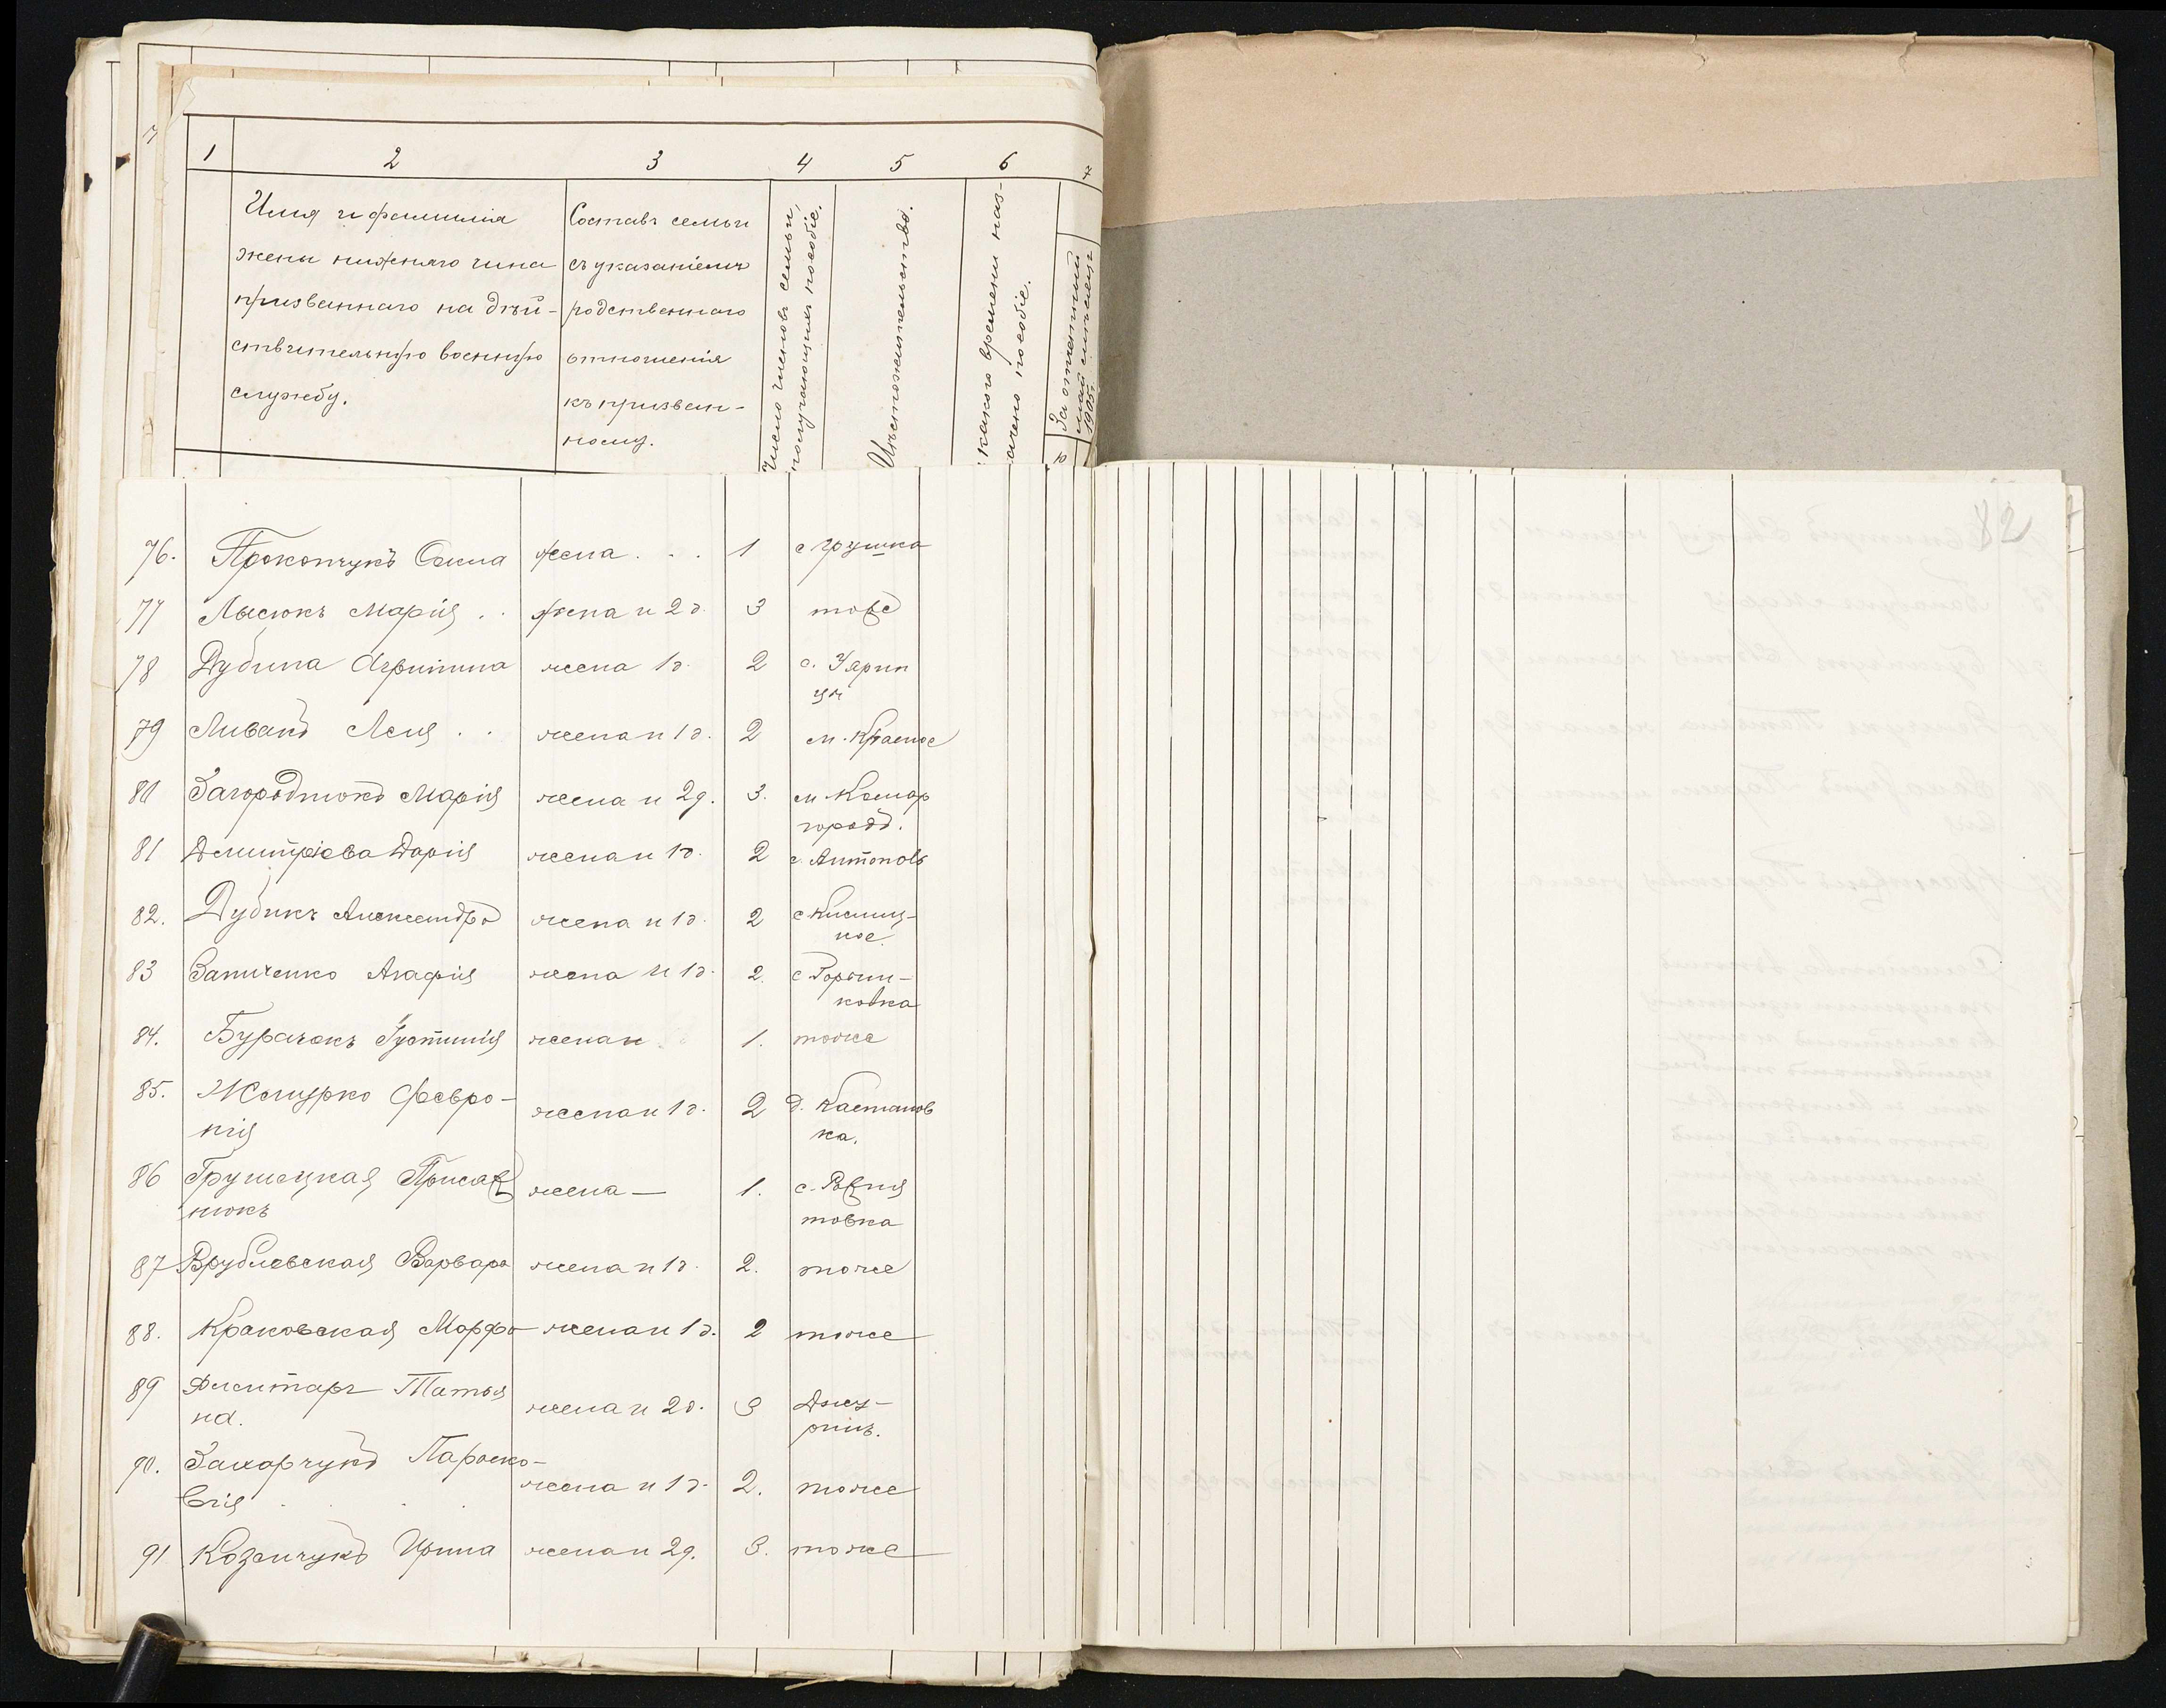 1 2 3 4 5 6 7
Имя и фамилія
жены нижняго чина
призваннаго на дѣй-
ствительную военную
службу.
Составъ семьи
съ указаніемъ
родственнаго
отношенія
къ призван-
ному.
Число членовъ семьи,
получающихъ пособіе.
Мѣстожительство.
какого времени наз-
ачено пособіе.
За
май мѣсяцъ
1905 г.
82
76. Прокопчукъ Анна жена . . . 1 с Грушка
77 Лысюкъ Марія . . жена и 2 д. 3 тоже
78 Дубина жена 1 д. 2 с. Уярин
цы
79 Ливакъ . . жена и 1 д. 2 м. Красное
80 Загороднюкъ Марія жена и 2 д. 3. м Комар
городъ.
81 Дмитріева Дарія жена и 1 д. 2 с. Антоновъ
82. Дубикъ Александра жена и 1 д. 2 с Кисниц-
кое.
83 Заниченко Агафія жена и 1 д. 2. с Горыш-
ковка
84. Бурачокъ Густинія жена и 1. тоже
85. Жмурко Февро-
нія жена и 1 д. 2 д. Каетанов
ка.
86 Грушецкая
нюкъ жена — 1. с.
товка
87 Врублевская Варвара жена и 1 д. 2. тоже
88. Краковская Марфа жена и 1 д. 2 тоже
89 Татья
на. жена и 2 д. 3 Джу-
ринъ.
90. Захарчукъ Параске-
вія . . . жена и 1 д. 2. тоже
91 Козенчукъ Ирина жена и 2 д. 3. тоже